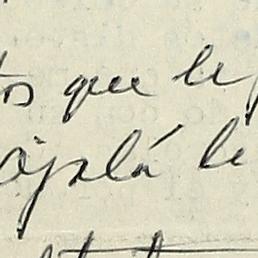 que le
ojalá le